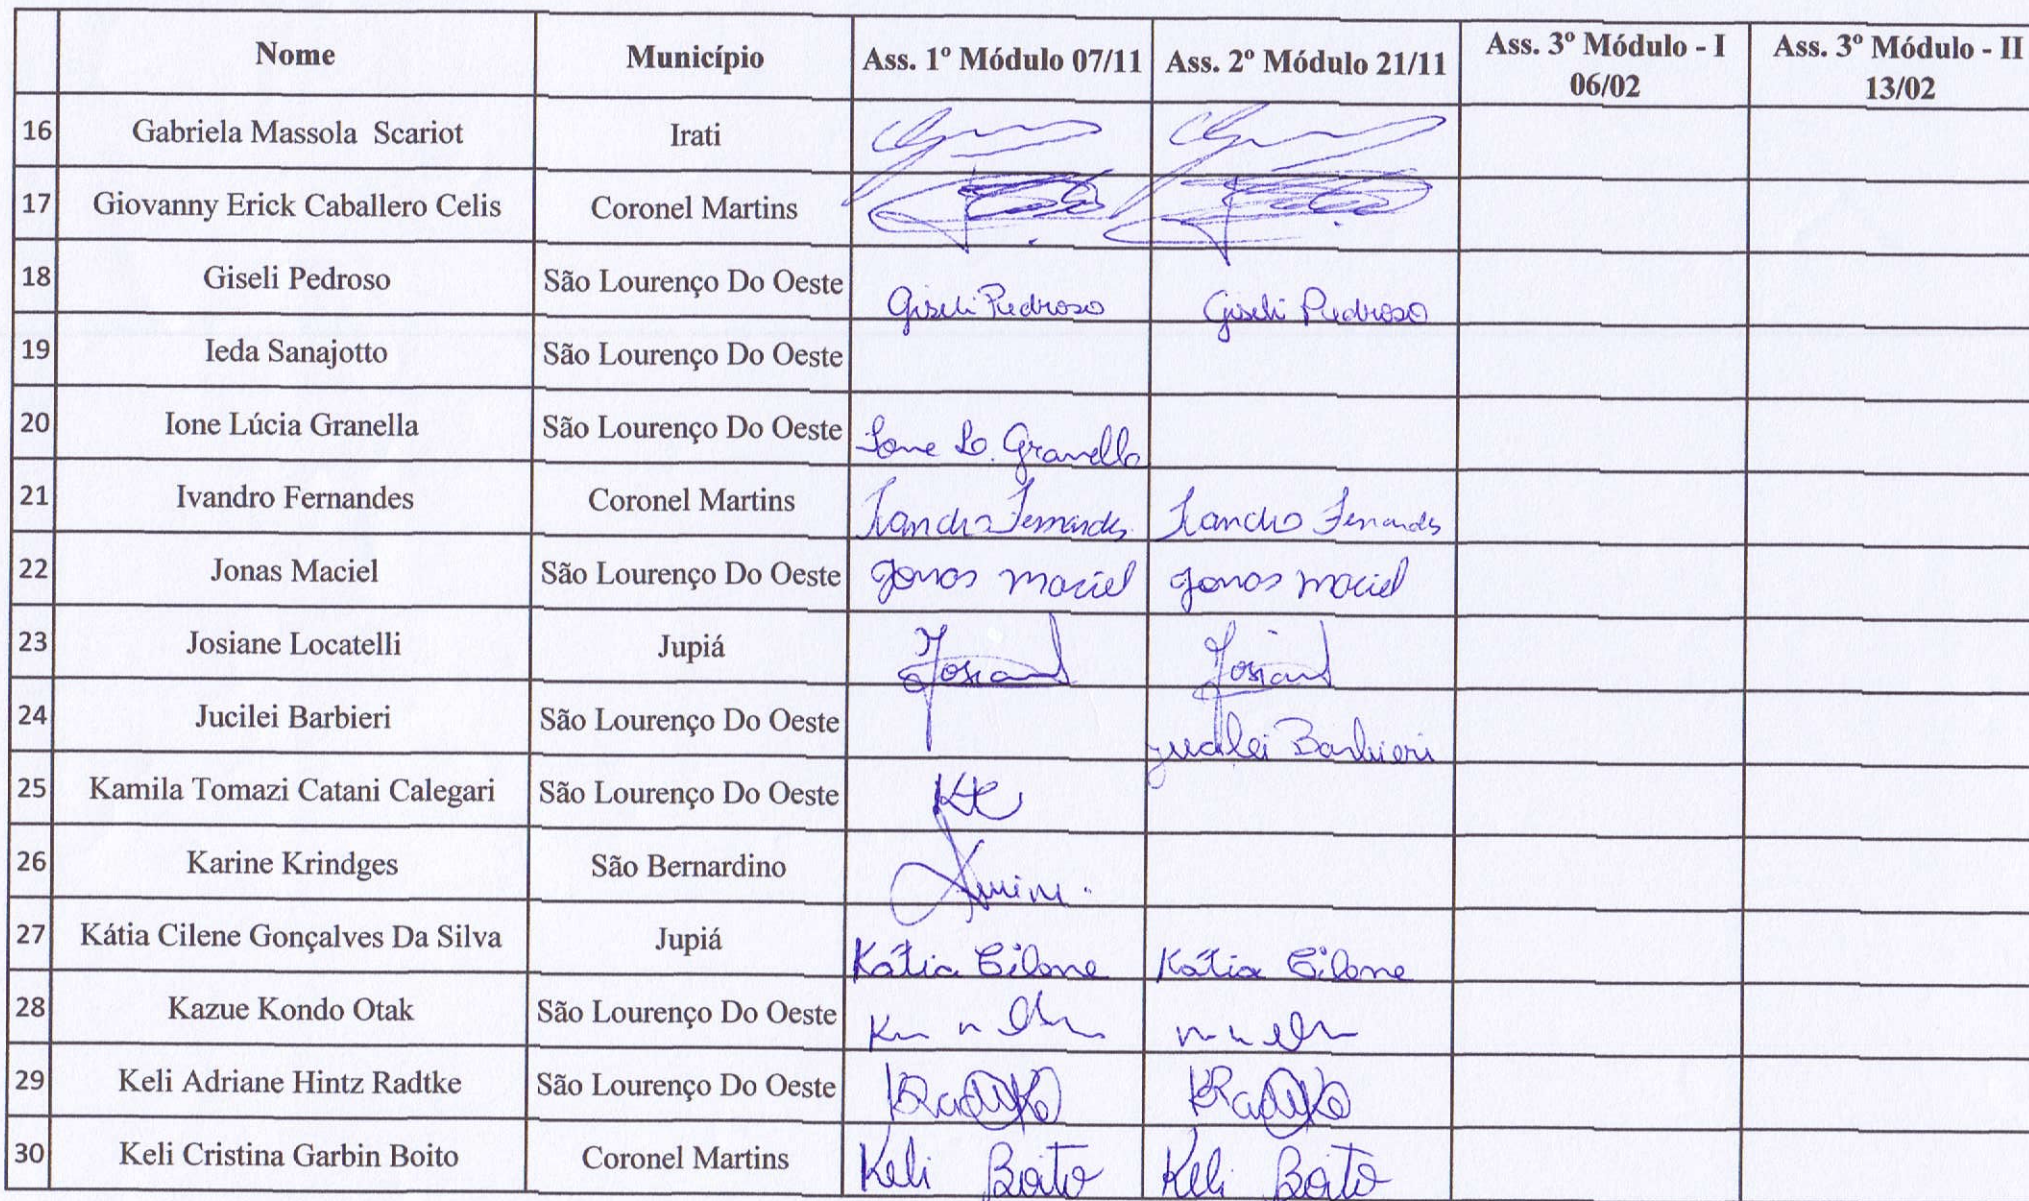 Nome Município Ass. 1º Módulo 07/11 Ass. 2º Módulo 21/11 Ass. 3º Módulo - I 06/02 Ass. 3º Módulo - II 13/02
16 Gabriela Massola Scariot Irati
17 Giovanny Erick Caballero Celis Coronel Martins
18 Giseli Pedroso São Lourenço Do Oeste Giseli Pedroso Giseli Pedroso
19 Ieda Sanajotto São Lourenço Do Oeste
20 Ione Lúcia Granella São Lourenço Do Oeste Ione L. Granella
21 Ivandro Fernandes Coronel Martins Ivandro Fernandes Ivandro Fernandes
22 Jonas Maciel São Lourenço Do Oeste Jonas Maciel Jonas Maciel
23 Josiane Locatelli Jupiá
24 Jucilei Barbieri São Lourenço Do Oeste Jucilei Barbieri
25 Kamila Tomazi Catani Calegari São Lourenço Do Oeste
26 Karine Krindges São Bernardino
27 Kátia Cilene Gonçalves Da Silva Jupiá Kátia Cilene Kátia Cilene
28 Kazue Kondo Otak São Lourenço Do Oeste
29 Keli Adriane Hintz Radtke São Lourenço Do Oeste KRadtke KRadtke
30 Keli Cristina Garbin Boito Coronel Martins Keli Boito Keli Boito